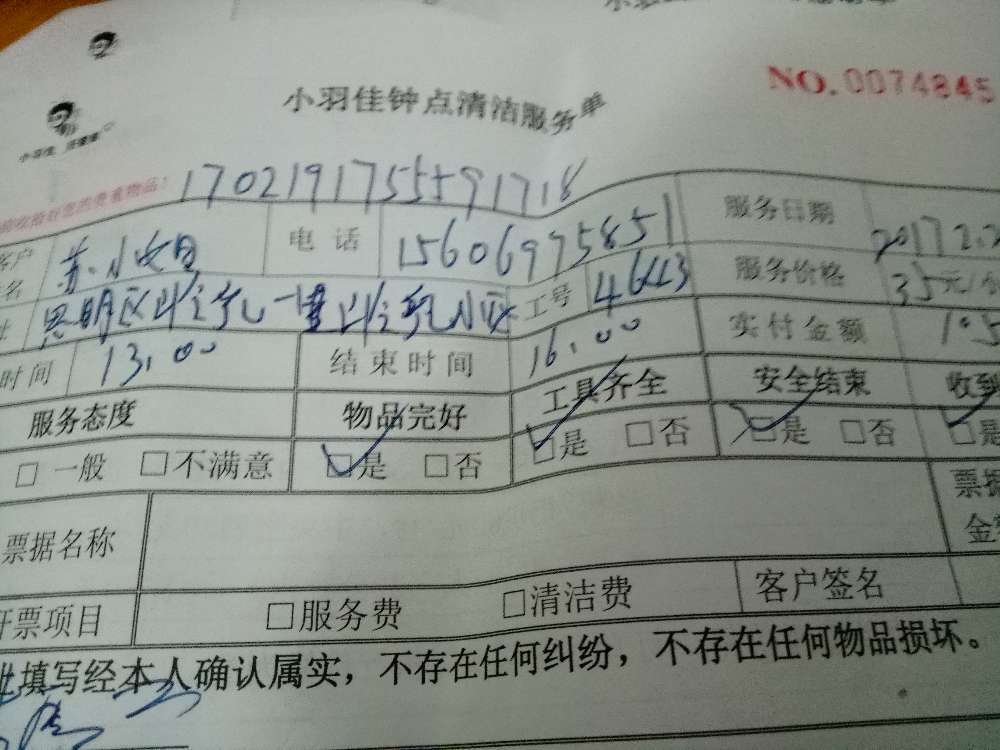 小羽佳钟点清洁服务单
NO.0074845
小羽佳
1702191755591718
客户 电话 15606975851 服务日期 2017.2.2
名
址 思明区 工号 4643 服务价格 35元/小
时间 13:00 结束时间 16:00 实付金额 105
服务态度 物品完好 工具齐全 安全结束 收到
□一般 □不满意 □是 □否 □是 □否 □是 □否 □是
票据名称 票据
金额
开票项目 □服务费 □清洁费 客户签名
此填写经本人确认属实，不存在任何纠纷，不存在任何物品损坏。